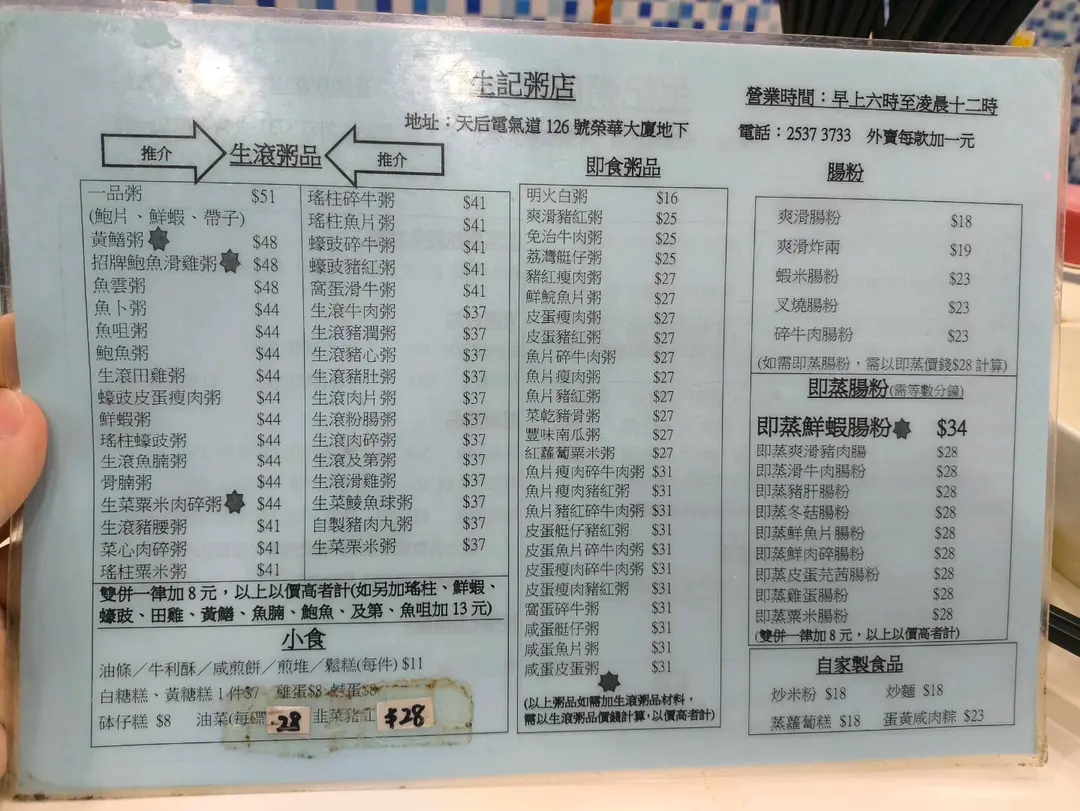 生記粥店
地址：天后電氣道 126 號榮華大廈地下
營業時間：早上六時至凌晨十二時
電話：2537 3733 外賣每款加一元
推介 生滾粥品 推介
一品粥 $51
(鮑片、鮮蝦、帶子)
黃鱔粥 $48
招牌鮑魚滑雞粥 $48
魚雲粥 $48
魚卜粥 $44
魚咀粥 $44
鮑魚粥 $44
生滾田雞粥 $44
蠔豉皮蛋瘦肉粥 $44
鮮蝦粥 $44
瑤柱蠔豉粥 $44
生滾魚腩粥 $44
骨腩粥 $44
生菜粟米肉碎粥 $44
生滾豬腰粥 $41
菜心肉碎粥 $41
瑤柱粟米粥 $41
瑤柱碎牛粥 $41
瑤柱魚片粥 $41
蠔豉碎牛粥 $41
蠔豉豬紅粥 $41
窩蛋滑牛粥 $41
生滾牛肉粥 $37
生滾豬潤粥 $37
生滾豬心粥 $37
生滾豬肚粥 $37
生滾肉片粥 $37
生滾粉腸粥 $37
生滾肉碎粥 $37
生滾及第粥 $37
生滾滑雞粥 $37
生菜鯪魚球粥 $37
自製豬肉丸粥 $37
生菜粟米粥 $37
雙併一律加 8 元，以上以價高者計(如另加瑤柱、鮮蝦、
蠔豉、田雞、黃鱔、魚腩、鮑魚、及第、魚咀加 13 元)
小食
油條／牛利酥／咸煎餅／煎堆／鬆糕(每件) $11
白糖糕、黃糖糕 1 件$7 雞蛋$8 鹹蛋$8
砵仔糕 $8 油菜(每碟 28 韭菜豬紅 $28
即食粥品
明火白粥 $16
爽滑豬紅粥 $25
免治牛肉粥 $25
荔灣艇仔粥 $25
豬紅瘦肉粥 $27
鮮鯇魚片粥 $27
皮蛋瘦肉粥 $27
皮蛋豬紅粥 $27
魚片碎牛肉粥 $27
魚片瘦肉粥 $27
魚片豬紅粥 $27
菜乾豬骨粥 $27
豐味南瓜粥 $27
紅蘿蔔粟米粥 $27
魚片瘦肉碎牛肉粥 $31
魚片瘦肉豬紅粥 $31
魚片豬紅碎牛肉粥 $31
皮蛋艇仔豬紅粥 $31
皮蛋魚片碎牛肉粥 $31
皮蛋瘦肉碎牛肉粥 $31
皮蛋瘦肉豬紅粥 $31
窩蛋碎牛粥 $31
咸蛋艇仔粥 $31
咸蛋魚片粥 $31
咸蛋皮蛋粥 $31
(以上粥品如需加生滾粥品材料，
需以生滾粥品價錢計算，以價高者計)
腸粉
爽滑腸粉 $18
爽滑炸兩 $19
蝦米腸粉 $23
叉燒腸粉 $23
碎牛肉腸粉 $23
(如需即蒸腸粉，需以即蒸價錢$28 計算)
即蒸腸粉(需等數分鐘)
即蒸鮮蝦腸粉 $34
即蒸爽滑豬肉腸 $28
即蒸滑牛肉腸粉 $28
即蒸豬肝腸粉 $28
即蒸冬菇腸粉 $28
即蒸鮮魚片腸粉 $28
即蒸鮮肉碎腸粉 $28
即蒸皮蛋芫茜腸粉 $28
即蒸雞蛋腸粉 $28
即蒸粟米腸粉 $28
(雙併一律加 8 元，以上以價高者計)
自家製食品
炒米粉 $18 炒麵 $18
蒸蘿蔔糕 $18 蛋黃咸肉粽 $23